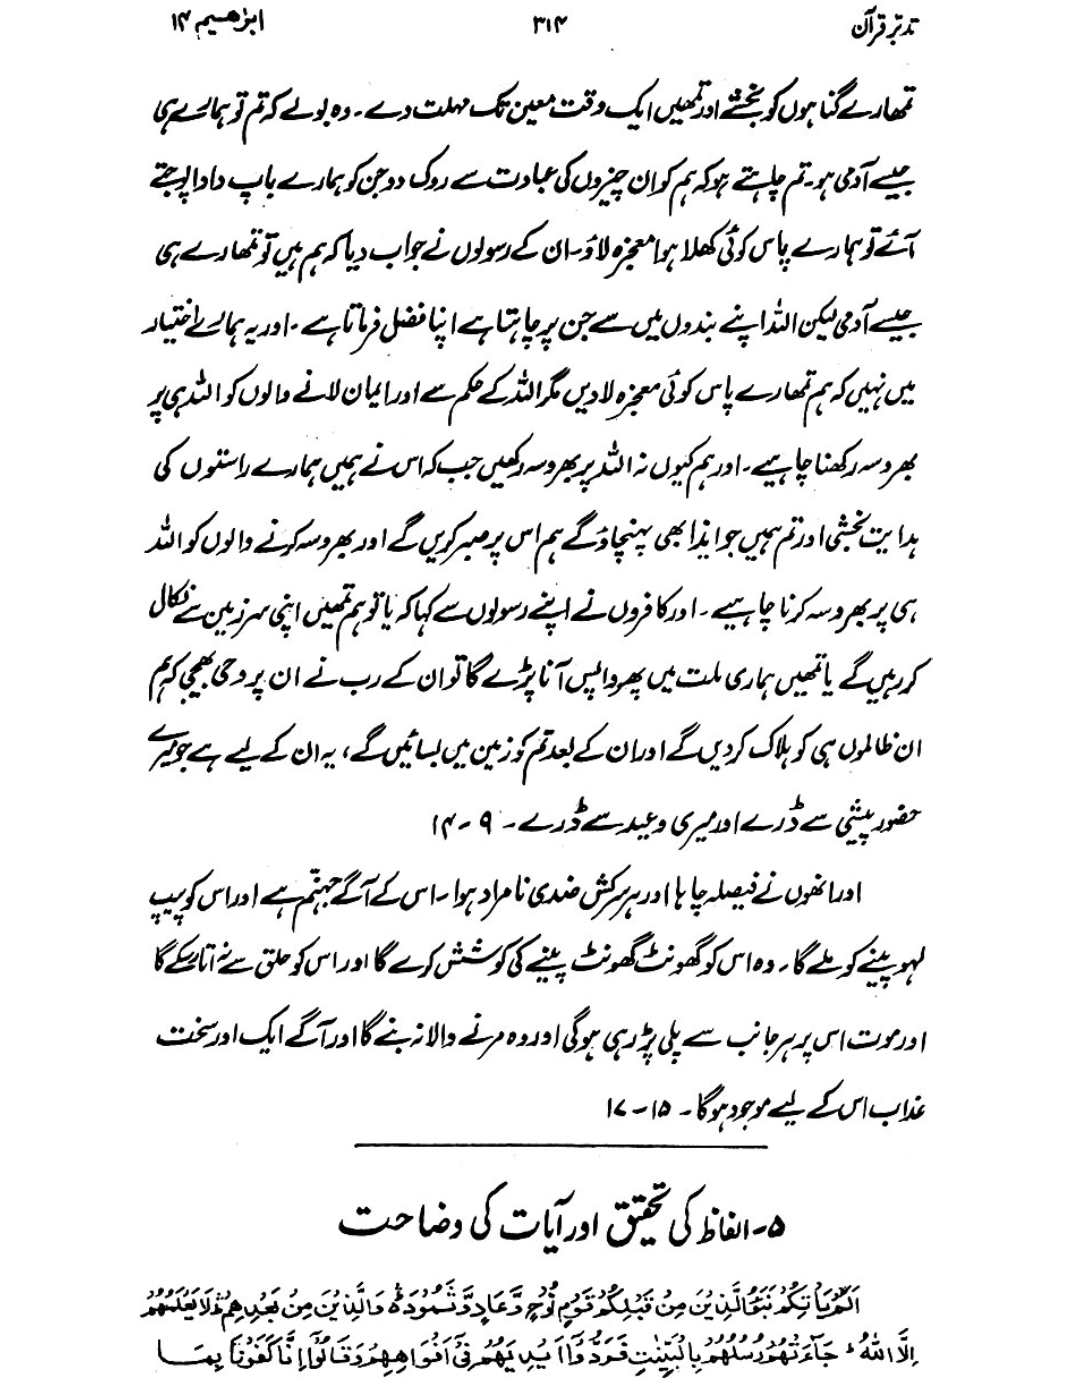 تدبر قرآن ۳۱۴ ابراھیم ۱۴
تمھارے گناہوں کو بخشے اور تمھیں ایک وقت معین تک مہلت دے۔ وہ بولے کہ تم تو ہمارے ہی
جیسے آدمی ہو۔ تم چاہتے ہو کہ ہم کو ان چیزوں کی عبادت سے روک دو جن کو ہمارے باپ دادا پوجتے
آئے تو ہمارے پاس کوئی کھلا ہوا معجزہ لاؤ۔ ان کے رسولوں نے جواب دیا کہ ہم ہیں تو تمھارے ہی
جیسے آدمی لیکن اللہ اپنے بندوں میں سے جن پر چاہتا ہے اپنا فضل فرماتا ہے۔ اور یہ ہمارے اختیار
میں نہیں کہ ہم تمھارے پاس کوئی معجزہ لا دیں مگر اللہ کے حکم سے اور ایمان لانے والوں کو اللہ ہی پر
بھروسہ رکھنا چاہیے۔ اور ہم کیوں نہ اللہ پر بھروسہ رکھیں جب کہ اس نے ہمیں ہمارے راستوں کی
ہدایت بخشی اور تم ہمیں جو ایذا بھی پہنچاؤ گے ہم اس پر صبر کریں گے اور بھروسہ کرنے والوں کو اللہ
ہی پر بھروسہ کرنا چاہیے۔ اور کافروں نے اپنے رسولوں سے کہا کہ یا تو ہم تمھیں اپنی سرزمین سے نکال
کر رہیں گے یا تمھیں ہماری ملت میں پھر واپس آنا پڑے گا تو ان کے رب نے ان پر وحی بھیجی کہ ہم
ان ظالموں ہی کو ہلاک کر دیں گے اور ان کے بعد تم کو زمین میں بسائیں گے، یہ ان کے لیے ہے جو میرے
حضور پیشی سے ڈرے اور میری وعید سے ڈرے۔ ۹-۱۴
اور انھوں نے فیصلہ چاہا اور ہر سرکش ضدی نامراد ہوا۔ اس کے آگے جہنّم ہے اور اس کو پیپ
لہو پینے کو ملے گا۔ وہ اس کو گھونٹ گھونٹ پینے کی کوشش کرے گا اور اس کو حلق سے نہ اتار سکے گا
اور موت اس پر ہر جانب سے پلی پڑ رہی ہوگی اور وہ مرنے والا نہ بنے گا اور آگے ایک اور سخت
عذاب اس کے لیے موجود ہوگا۔ ۱۵-۱۷
۵- الفاظ کی تحقیق اور آیات کی وضاحت
اَلَمْ یَأْتِکُمْ نَبَؤُا الَّذِیْنَ مِنْ قَبْلِکُمْ قَوْمِ نُوْحٍ وَّعَادٍ وَّثَمُوْدَ ۛ وَالَّذِیْنَ مِنْۢ بَعْدِھِمْ ۛ لَا یَعْلَمُھُمْ
اِلَّا اللّٰہُ ؕ جَآءَتْھُمْ رُسُلُھُمْ بِالْبَیِّنٰتِ فَرَدُّوْٓا اَیْدِیَھُمْ فِیْٓ اَفْوَاھِھِمْ وَقَالُوْٓا اِنَّا کَفَرْنَا بِمَا